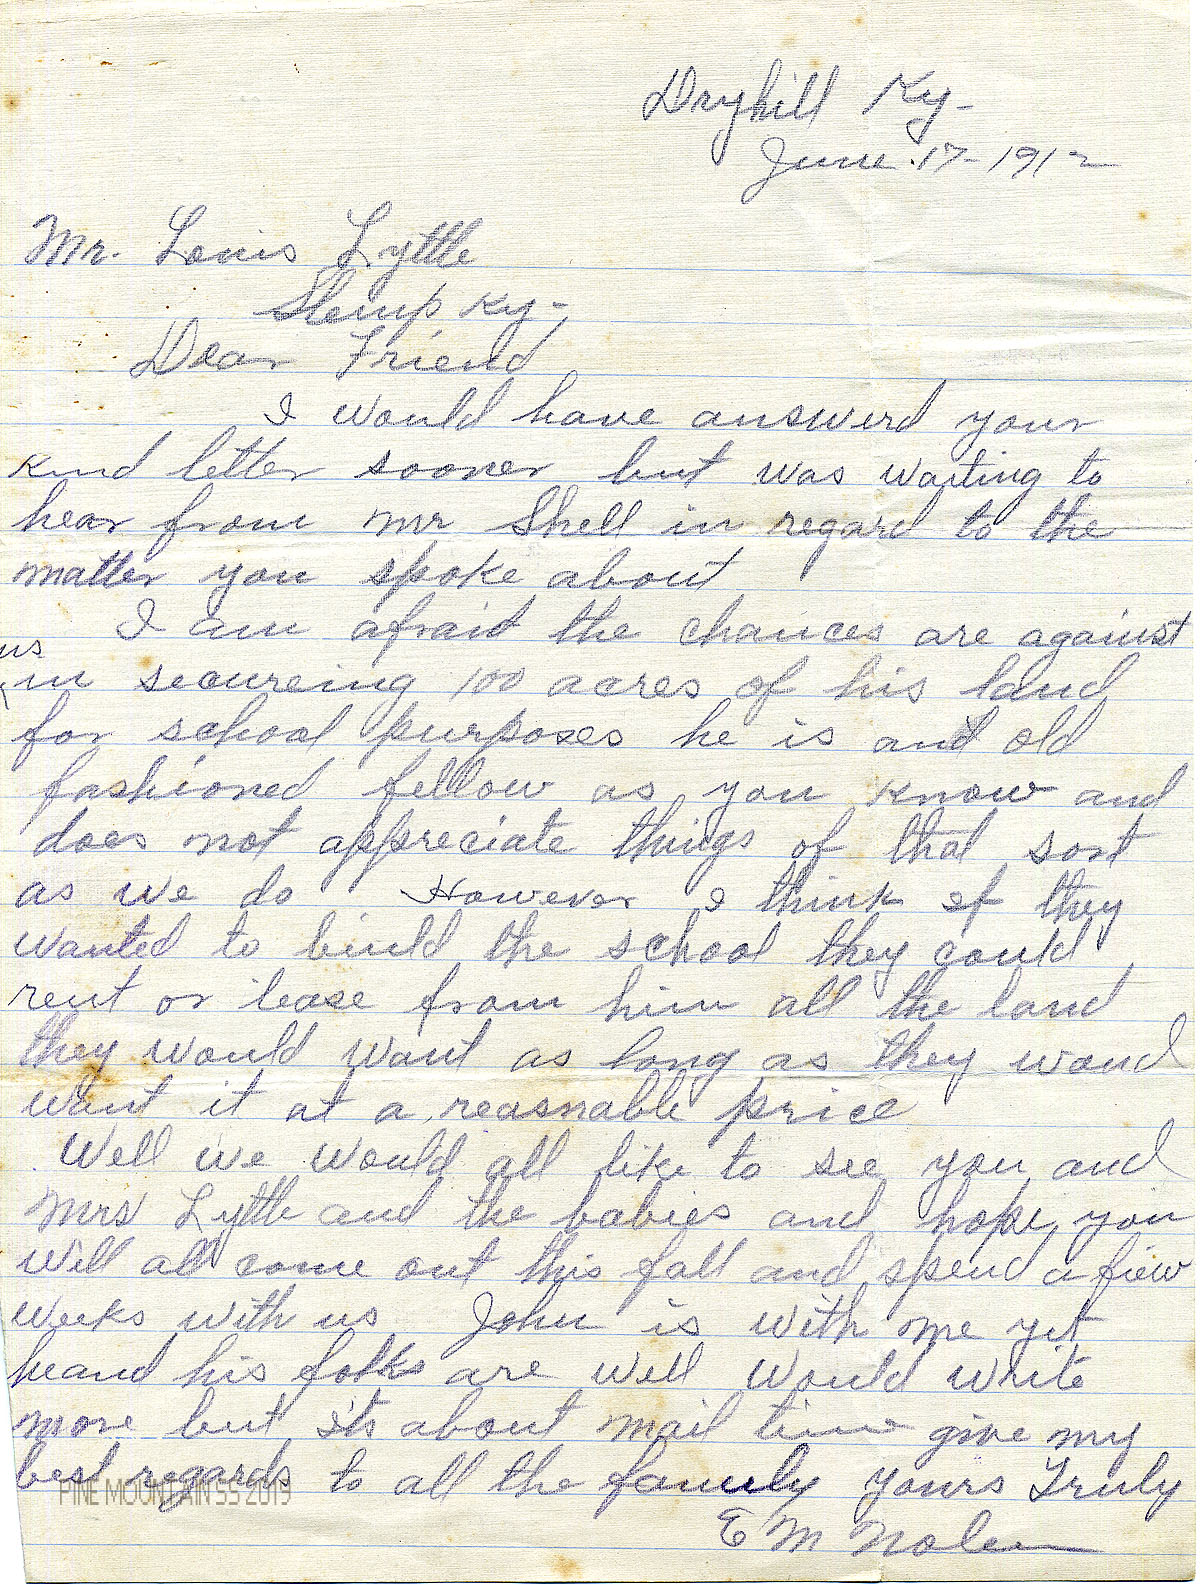 Dryhill Ky-
June 17-1912
Mr. Louis Lyttle
Slemp Ky-
Dear Friend
I would have answerd your
kind letter sooner but was waiting to
hear from Mr Shell in regard to the
matter you spoke about
I am afraid the chances are against
us
in secureing 100 acres of his land
for school purposes he is and old
fashioned fellow as you know and
does not appreciate things of that sort
as we do However I think if they
wanted to biuld the school they could
rent or lease from him all the land
they would want as long as they woud
want it at a reasnable price
Well we would all like to see you and
Mrs Lyttle and the babies and hope you
will all come out this fall and spend a fiew
weeks with us John is with me yet
heard his folks are well would write
more but its about mail time give my
best regards to all the family yours Truly
PINE MOUNTAIN SS 2019
E M Nolen